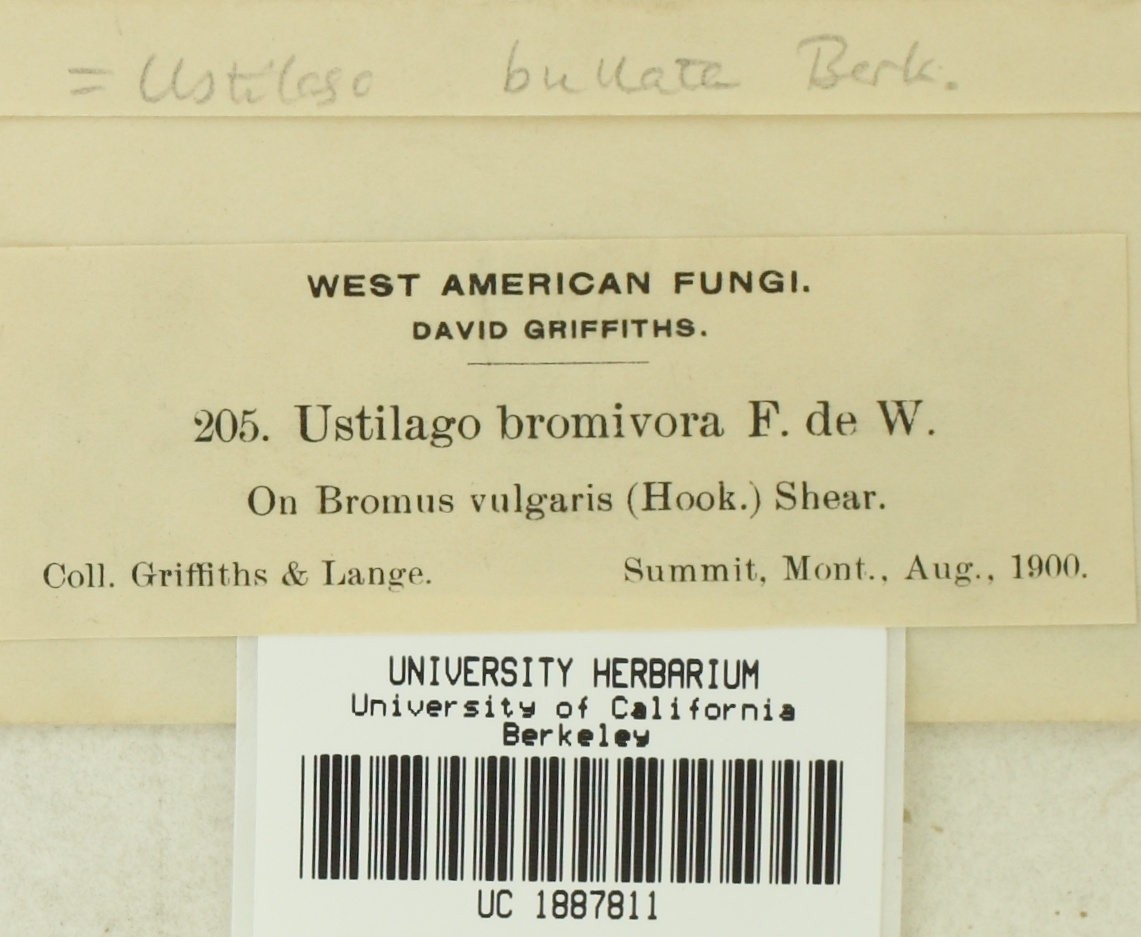 = Ustilago bullata Berk.
WEST AMERICAN FUNGI.
DAVID GRIFFITHS.
205. Ustilago bromivora F. de W.
On Bromus vulgaris (Hook.) Shear.
Coll. Griffiths & Lange. Summit, Mont., Aug., 1900.
UNIVERSITY HERBARIUM
University of California
Berkeley
UC 1887811